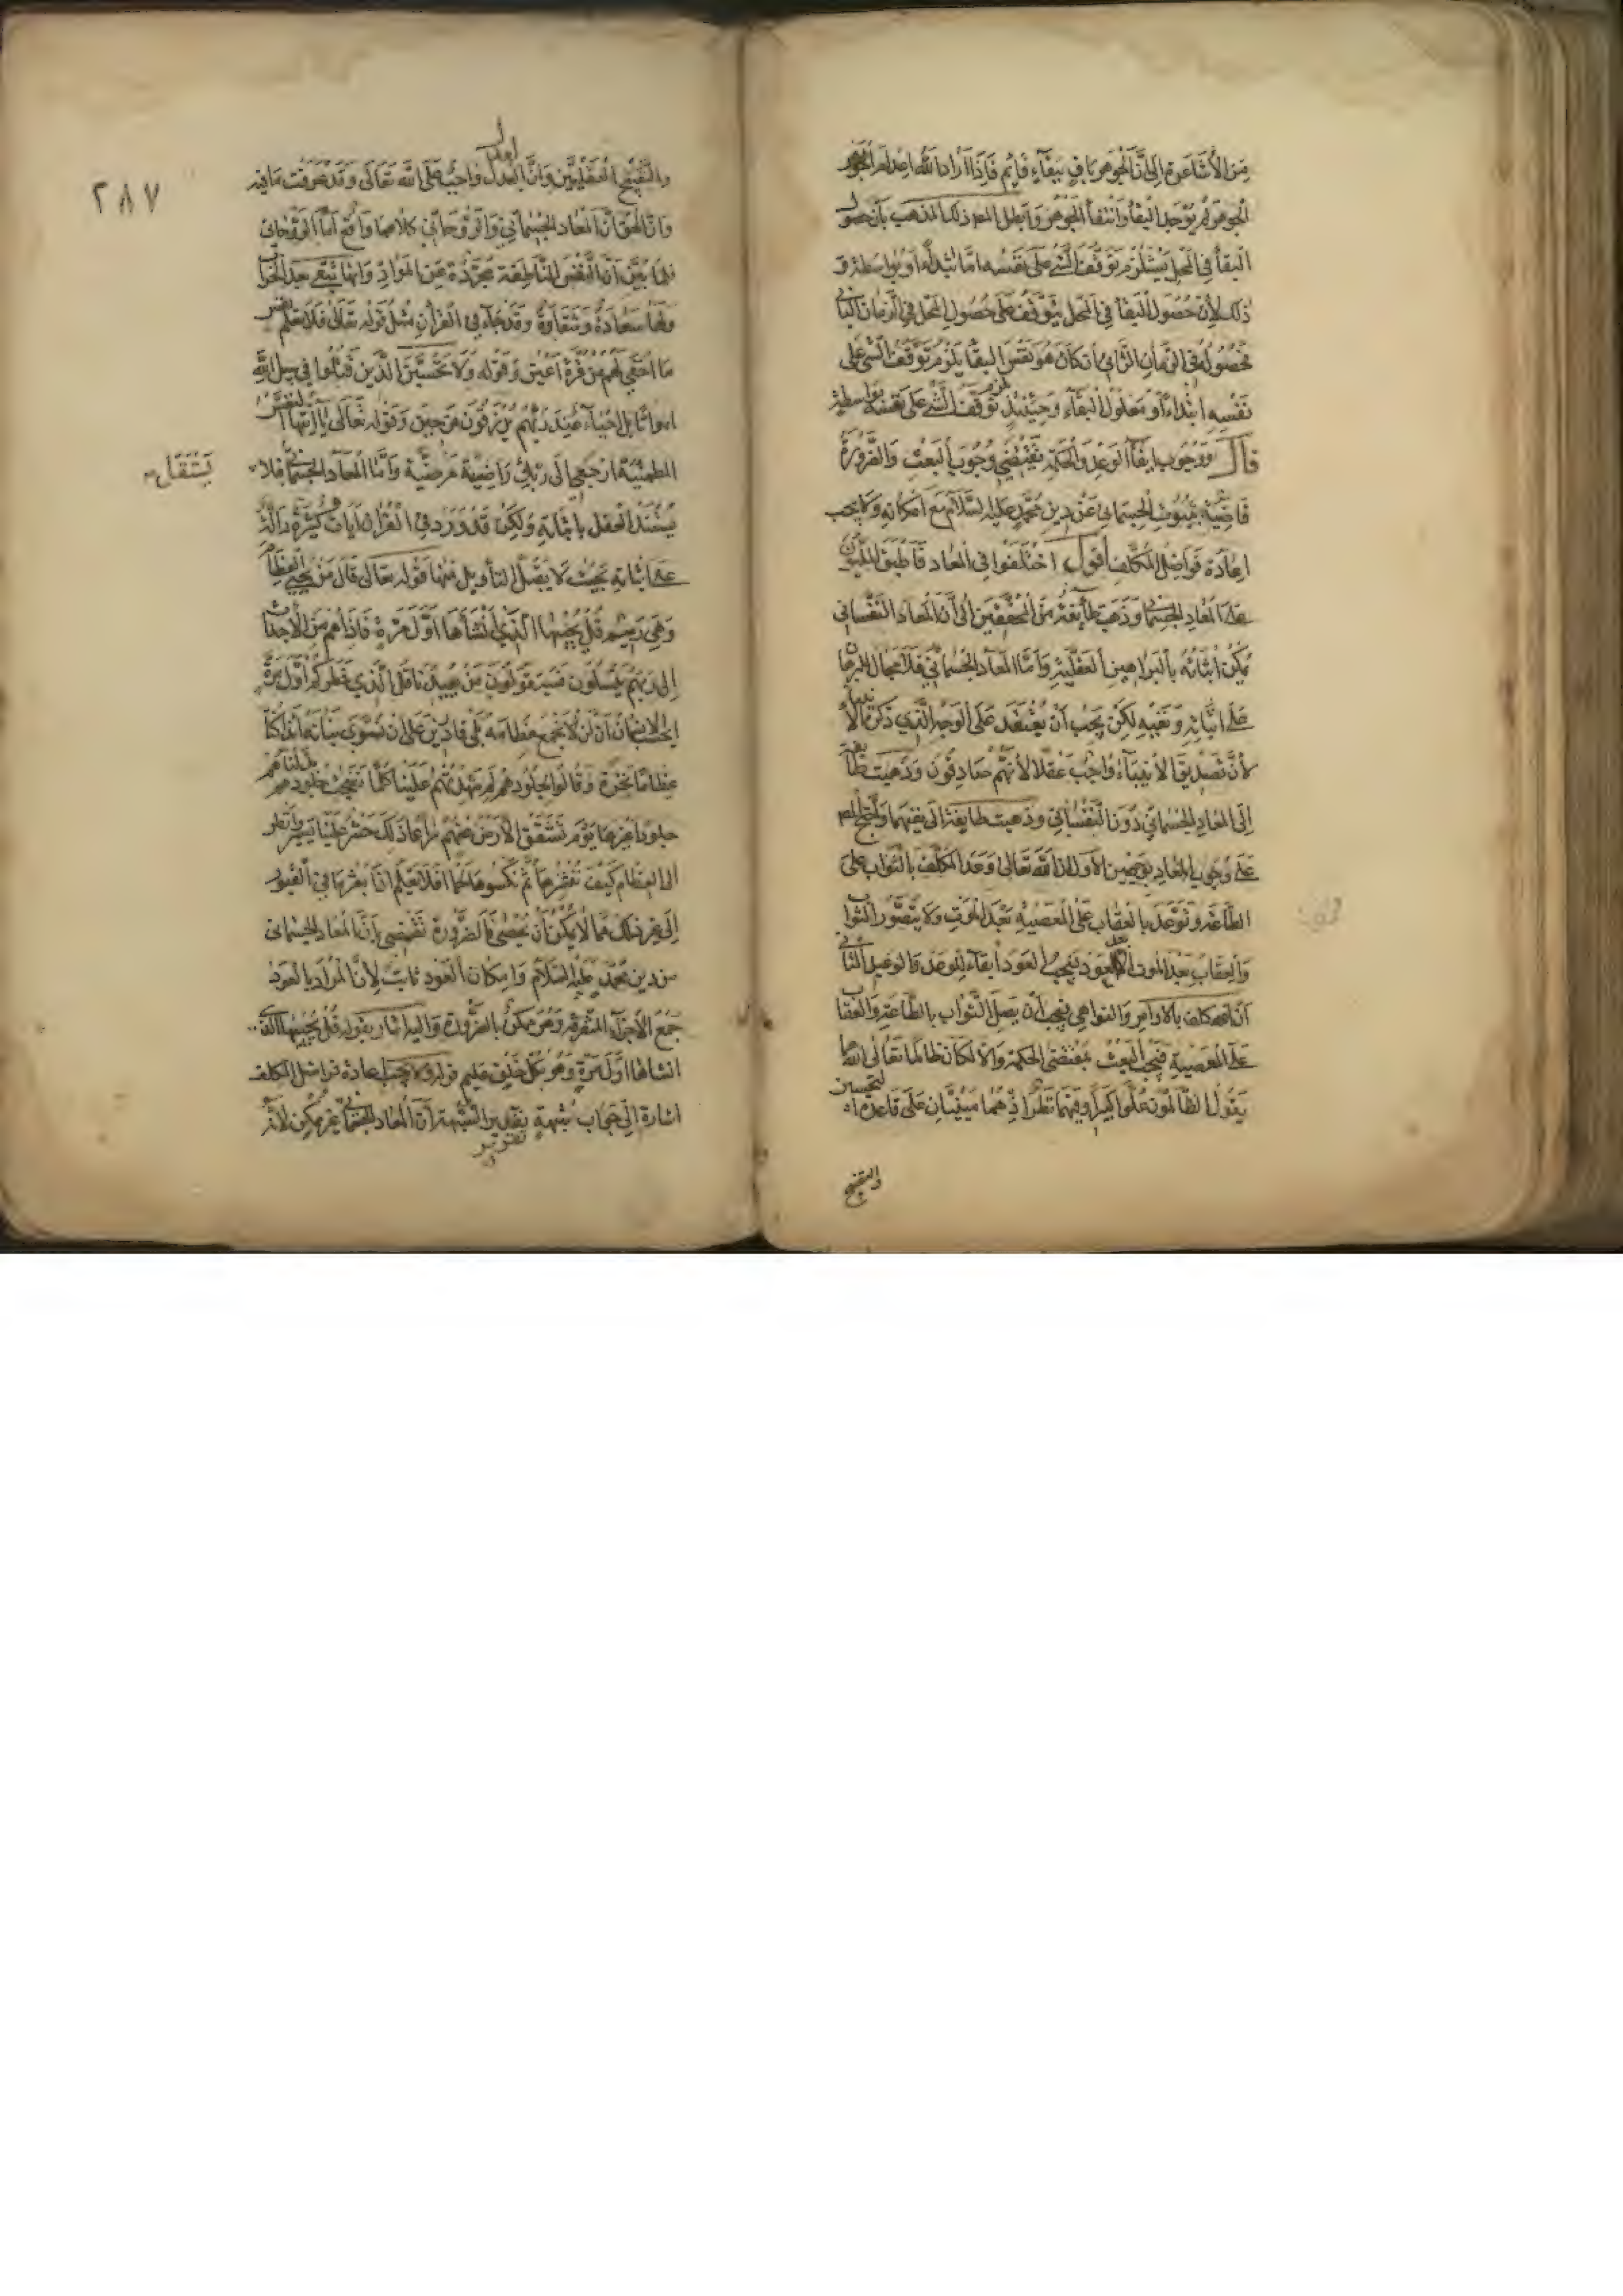 من الأشاعرة إلى أن الجوهر باق ببقاء قائم فإذا أراد الله إعدام الجوهر
الجوهر لم يوجد البقاء وانتفا الجوهر وأبطل المصـ ذلك المذهب بأن حصول
البقا في المحل يستلزم توقف الشئ على نفسه اما ابتداء أو بواسطة و
ذلك لأن حصول البقا في المحل يتوقف على حصول المحل في الزمان الثاني
فحصوله في الزمان الثاني ان كان هو نفس البقا يلزم توقف الشئ على
نفسه ابتداء أو معلول البقاء وحينئذ يلزم توقف الشئ على نفسه بواسطة
قال ووجوب ايفاء الوعد والحكمة تقتضي وجوب البعث والضرورة
قاضية بثبوت الجسماني عن دين محمد عليه السلام مع امكانه ولا يجب
اعادة فواضل المكلف أقول اختلفوا في المعاد فأطبق المليون
على المعاد الجسماني وذهب طائفة من المحققين الى أن المعاد النفساني
يمكن اثباته بالبراهين العقلية وأما المعاد الجسماني فلا مجال للبرهان
على اثباته ونفيه لكن يجب أن يعتقد على الوجه الذي ذكره الأنبيا
لأن تصديق الأنبياء واجب عقلا لأنهم صادقون وذهبت طائفة
إلى المعاد الجسماني دون النفساني وذهبت طائفة الى نفيهما واحتج المصـ
على وجوب المعاد بوجهين الأول أن الله تعالى وعد المكلف بالثواب على
الطاعة وتوعد بالعقاب على المعصية بعد الموت ولا يتصور الثواب
والعقاب بعد الموت الا بالعود فيجب العود ايفاء للوعد والوعيد الثاني
أن الله كلف بالأوامر والنواهي فيجب أن يصل الثواب بالطاعة والعقاب
على المعصية فيجب البعث بمقتضى الحكمة والا لكان ظالما تعالى الله عما
يقول الظالمون علوا كبيرا وفيهما نظر اذ هما مبنيان على قاعدة التحسين
والتقبيح
٢٨٧
والتقبيح العقليين وان العدل واجب على الله تعالى وقد عرفت ما فيه
وان الحق أن المعاد الجسماني والروحاني كلاهما واقع أما الروحاني
فلما بين أن النفس الناطقة مجردة عن المواد وانها تبقى بعد الخراب
ولها سعادة وشقاوة وقد جاء في القرآن مثل قوله تعالى فلا تعلم نفس
ما اخفي لهم من قرة أعين وقوله ولا تحسبن الذين قتلوا في سبيل الله
امواتا بل احياء عند ربهم يرزقون فرحين وقوله تعالى يا أيتها النفس
المطمئنة ارجعي الى ربك راضية مرضية وأما المعاد الجسماني فلا
يستقل
العقل باثباته ولكن قد ورد في القرآن آيات كثيرة دالة
على اثباته بحيث لا يقبل التأويل منها قوله تعالى قال من يحيي العظام
وهي رميم قل يحييها الذي أنشأها أول مرة فاذا هم من الأجداث
إلى ربهم ينسلون فسيقولون من يعيدنا قل الذي فطركم أول مرة
ايحسب الانسان أن لن نجمع عظامه بلى قادرين على ان نسوي بنانه أئذا كنا
عظاما نخرة وقالوا لجلودهم لم شهدتم علينا كلما نضجت جلودهم بدلناهم
جلودا غيرها يوم تشقق الأرض عنهم سراعا ذلك حشر علينا يسير وانظر
الى العظام كيف ننشزها ثم نكسوها لحما افلا يعلم اذا بعثر ما في القبور
إلى غير ذلك مما لا يمكن أن يحصى فالضرورة تقتضي بأن المعاد الجسماني
من دين محمد عليه السلام وامكان العود ثابت لأن المراد بالعود
جمع الأجزاء المتفرقة وهو ممكن بالضرورة واليه اشار بقوله قل يحييها الذي
انشاها اول مرة وهو بكل خلق عليم قوله ولا يجب اعادة فواضل المكلف
اشارة إلى جواب شبهة تقرير الشبهة أن المعاد الجسماني غير ممكن لأنه